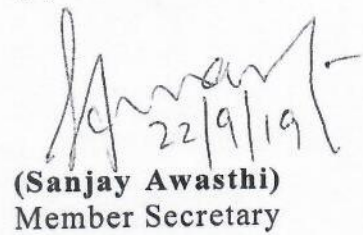 22/9/19
(Sanjay Awasthi)
Member Secretary